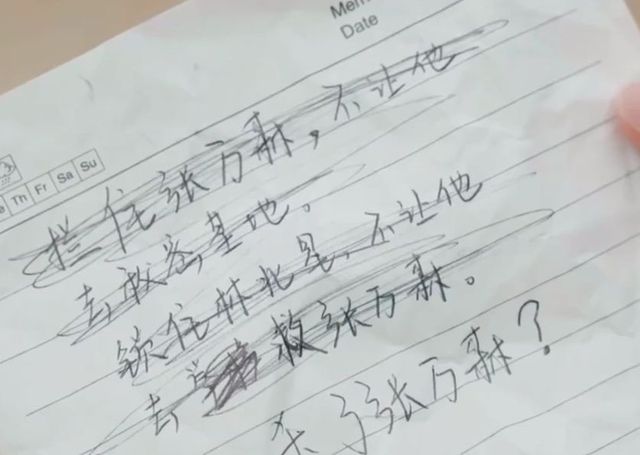 Mem
Date
e Th Fr Sa Su
拦住张万森，不让他
去秘密基地。
锁住林北星，不让他
去救张万森。
杀了张万森？